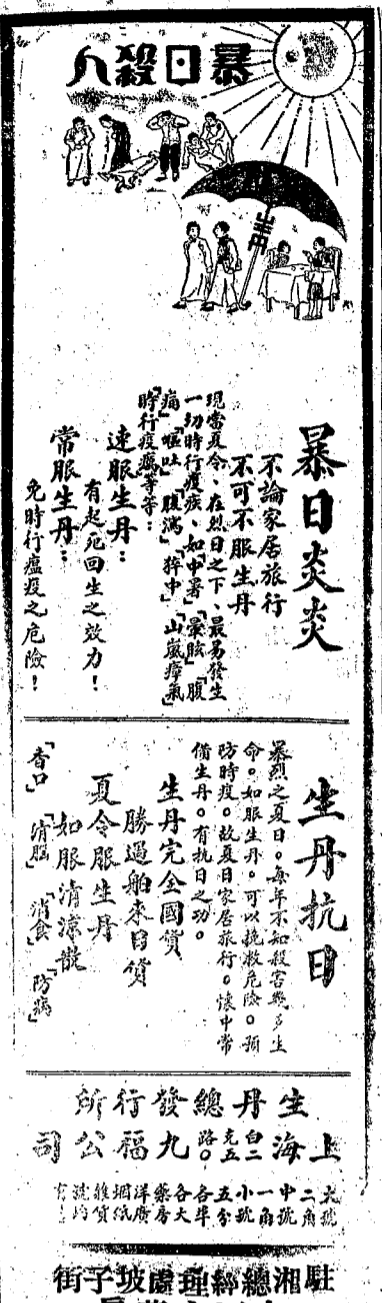 暴日殺人
生丹
暴日炎炎
不論家居旅行
不可不服生丹
現當夏令、在烈日之下、最易發生
一切時行疫疾、如「中暑」「暈眩」「腹
痛」「嘔吐」「腹瀉」「猝中」「山嵐瘴氣」
「時行疫癘」等等：
速服生丹：
有起死回生之效力！
常服生丹：
免時行瘟疫之危險！
生丹抗日
暴烈之夏日。每年不知殺害幾多生
命。如服生丹。可以挽救危險。預
防時疫。故夏日家居旅行。懷中常
備生丹。有抗日之功。
生丹完全國貨
勝過舶來日貨
夏令服生丹
如服清涼散
「香口」「清腦」「消食」「防病」
生丹總發行所
上海白克路二五九福公司
大號二角
中號一角
小號五分
各埠各大藥房
洋廣烟紙
雜貨號均有
駐湘總經理處坡子街